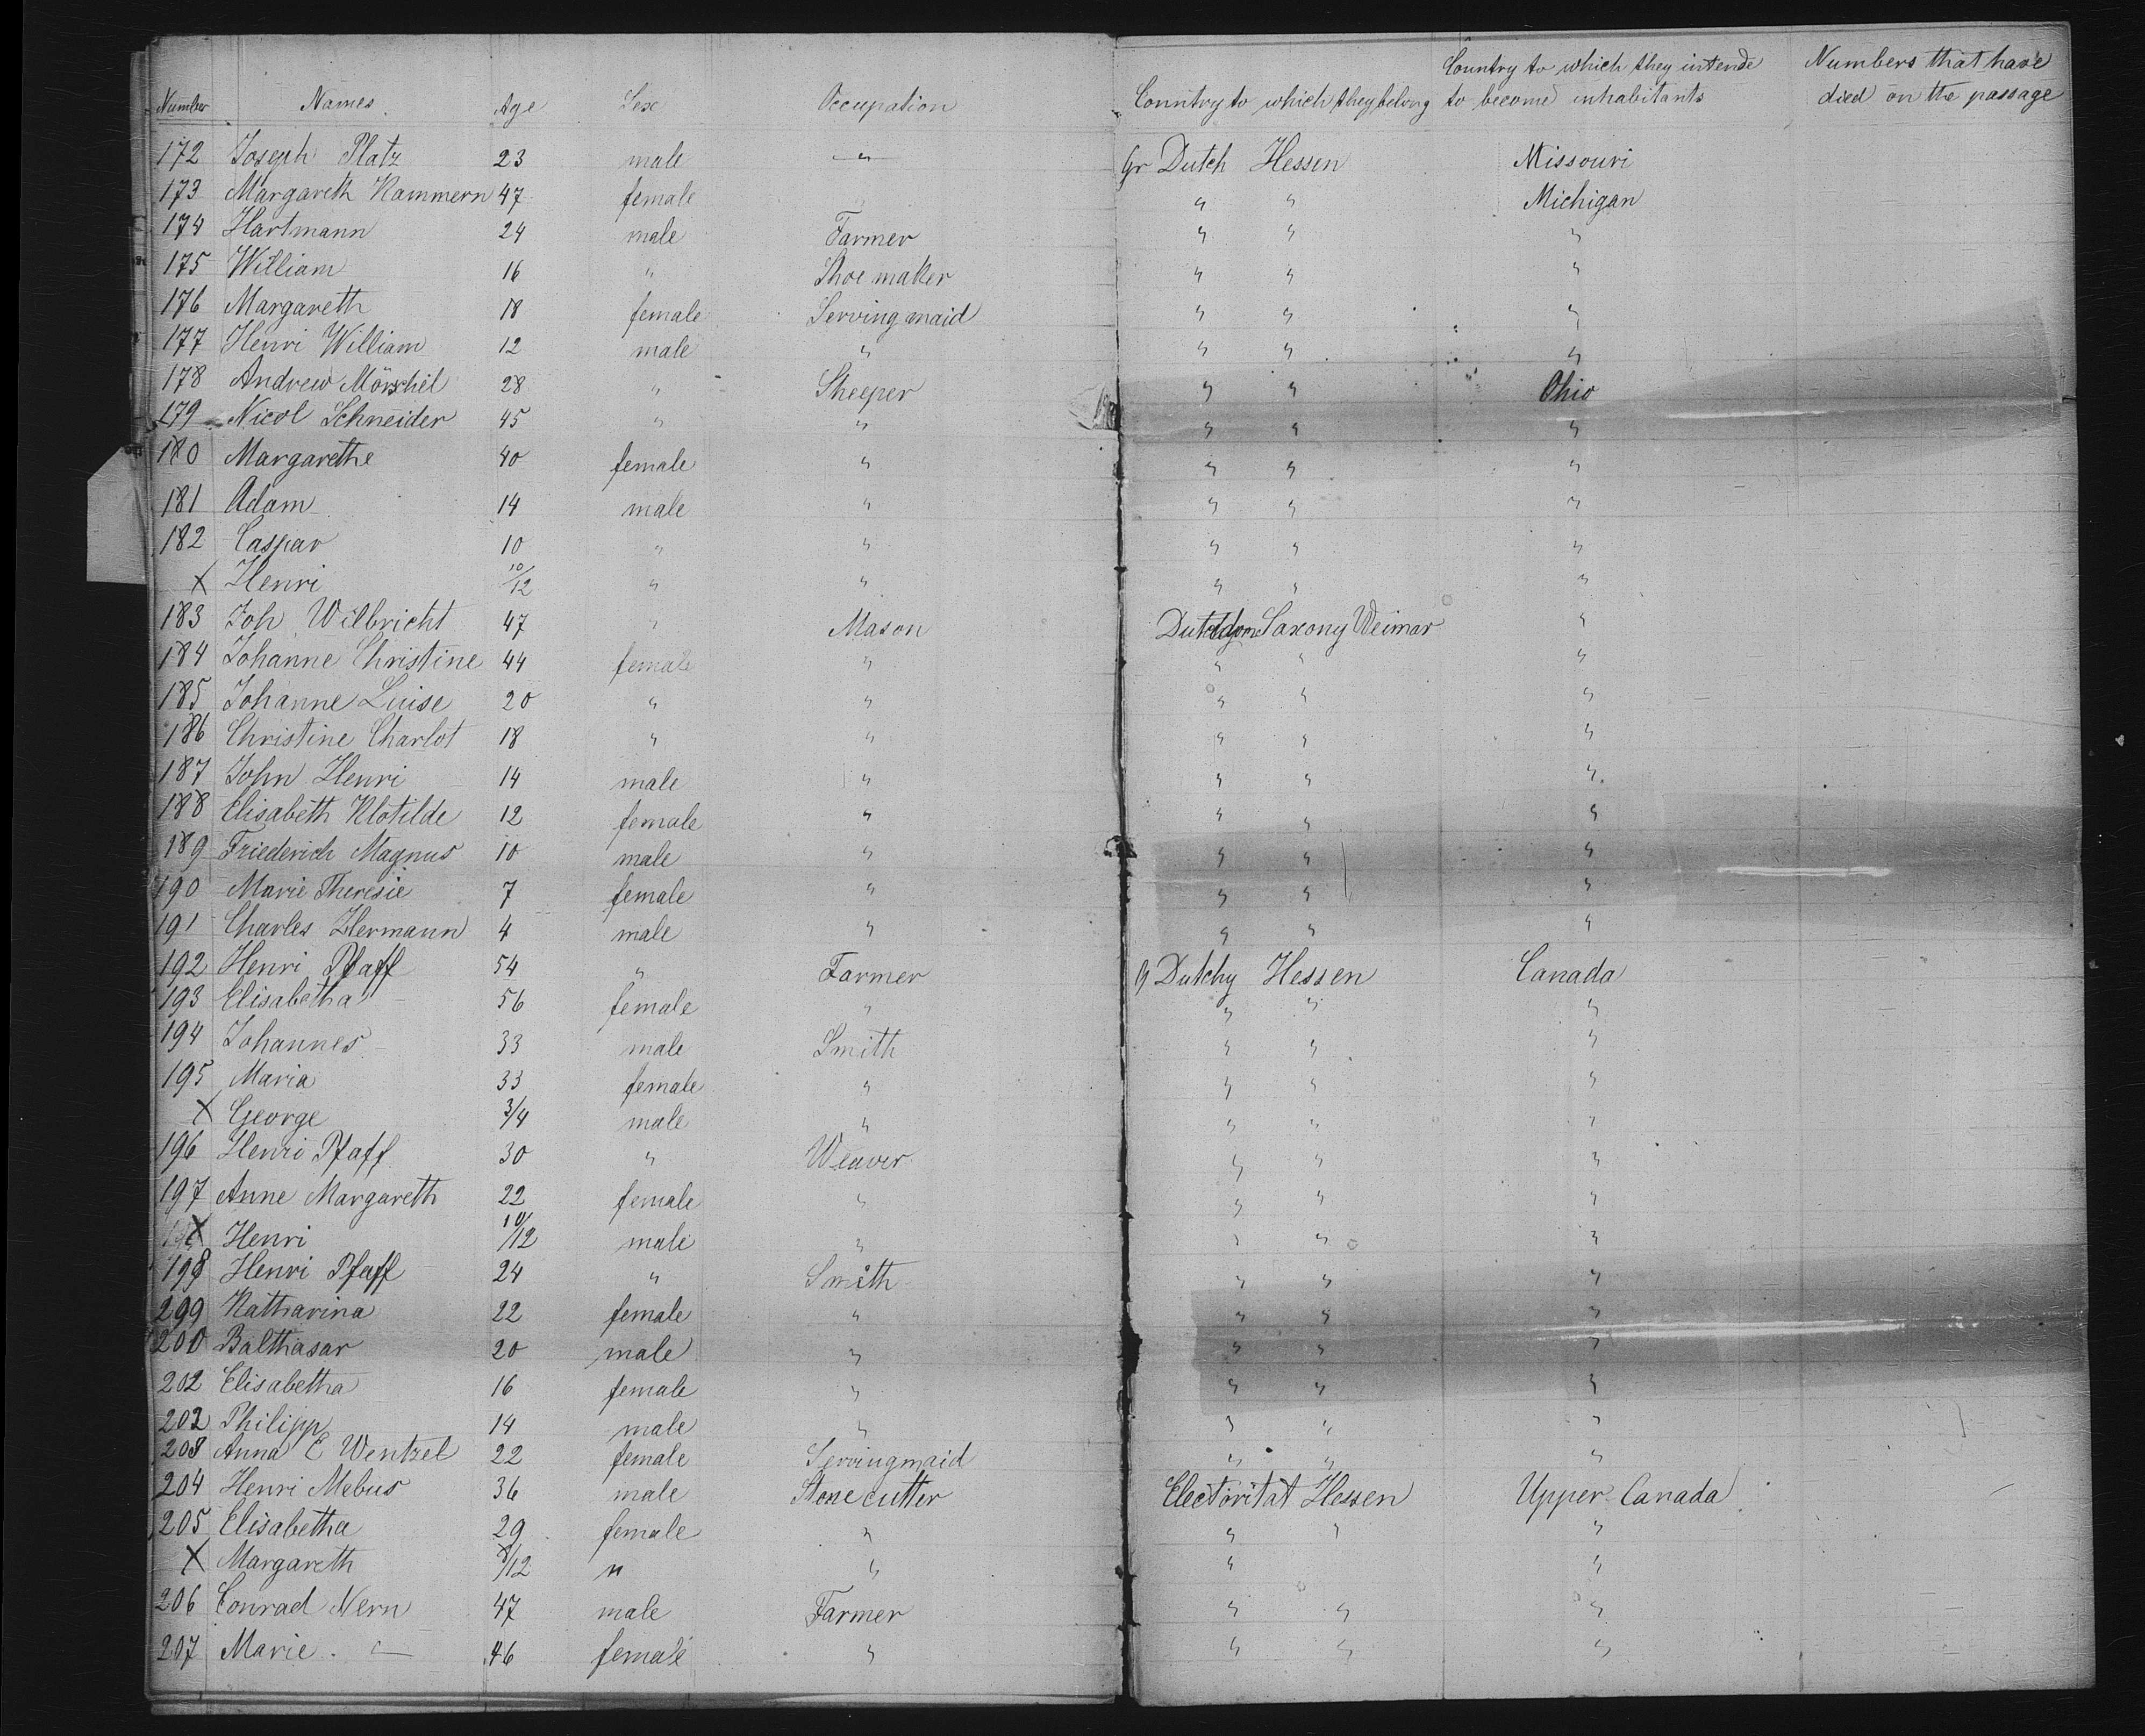 Number Names Age Sex Occupation Country to which they belong Country to which they intende to become inhabitants Numbers that have died on the passage
172 Joseph Platz 23 male — " — Gr Dutch Hessen Missouri
173 Margareth Kammern 47 female " " Michigan
174 Hartmann 24 male Farmer " " "
175 William 16 " Shoe maker " " "
176 Margareth 18 female Serving maid " " "
177 Henri William 12 male " " " "
178 Andrew Mörschel 28 " Sheeper " " Ohio
179 Nicol Schneider 45 " " " " "
180 Margarethe 40 female " " " "
181 Adam 14 male " " " "
182 Caspar 10 " " " " "
X Henri 10/12 " " " " "
183 Joh Wilbricht 47 " Mason Saxony Weimar "
184 Johanne Christine 44 female " " " "
185 Johanne Luise 20 " " " " "
186 Christine Charlot 18 " " " " "
187 John Henri 14 male " " " "
188 Elisabeth Klotilde 12 female " " " "
189 Friederich Magnus 10 male " " " "
190 Marie Theresie 7 female " " " "
191 Charles Hermann 4 male " " " "
192 Henri Pfaff 54 " Farmer G Dutchy Hessen Canada
193 Elisabetha 56 female " " " "
194 Johannes 33 male Smith " " "
195 Maria 33 female " " " "
X George 3/4 male " " " "
196 Henri Pfaff 30 " Weaver " " "
197 Anne Margareth 22 female " " " "
X Henri 10/12 male " " " "
198 Henri Pfaff 24 " Smith " " "
299 Katharina 22 female " " " "
200 Balthasar 20 male " " " "
202 Elisabetha 16 female " " " "
202 Philipp 14 male " " " "
203 Anna E Wentzel 22 female Servingmaid " " "
204 Henri Mebus 36 male Stone cutter Electoritat Hessen Upper Canada
205 Elisabetha 29 female " " " "
X Margareth 8/12 " " " "
206 Conrad Nern 47 male Farmer " " "
207 Marie " — 46 female " " " "